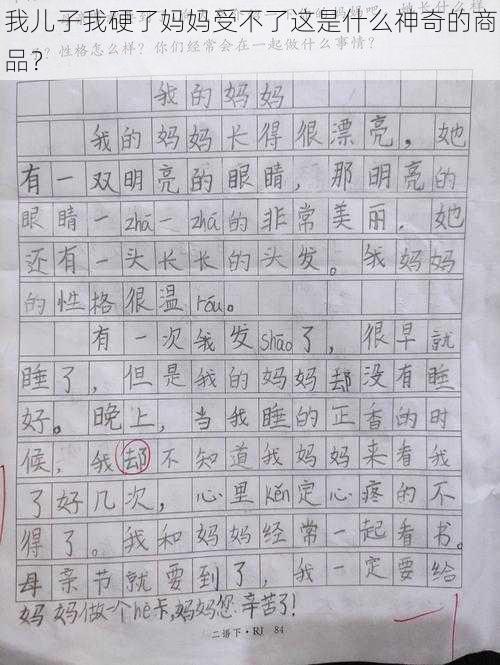 我儿子我硬了妈妈受不了这是什么神奇的商
品？
性格怎么样？你们经常会在一起做什么事情？
我的妈妈
我的妈妈长得很漂亮，她
有一双明亮的眼睛，那明亮的
眼睛一zhā一zhā的非常美丽．她
还有一头长长的头发。我妈妈
的性格很温róu。
有一次我发shāo了，很早就
睡了，但是我的妈妈却没有睡
好。晚上，当我睡的正香的时
候，我却不知道我妈妈来看我
了好几次，心里kěn定心疼的不
得了。我和妈妈经常一起看书。
母亲节就要到了，我一定要给
妈妈做一个hè卡，妈妈您辛苦了！
二语下·RJ 84